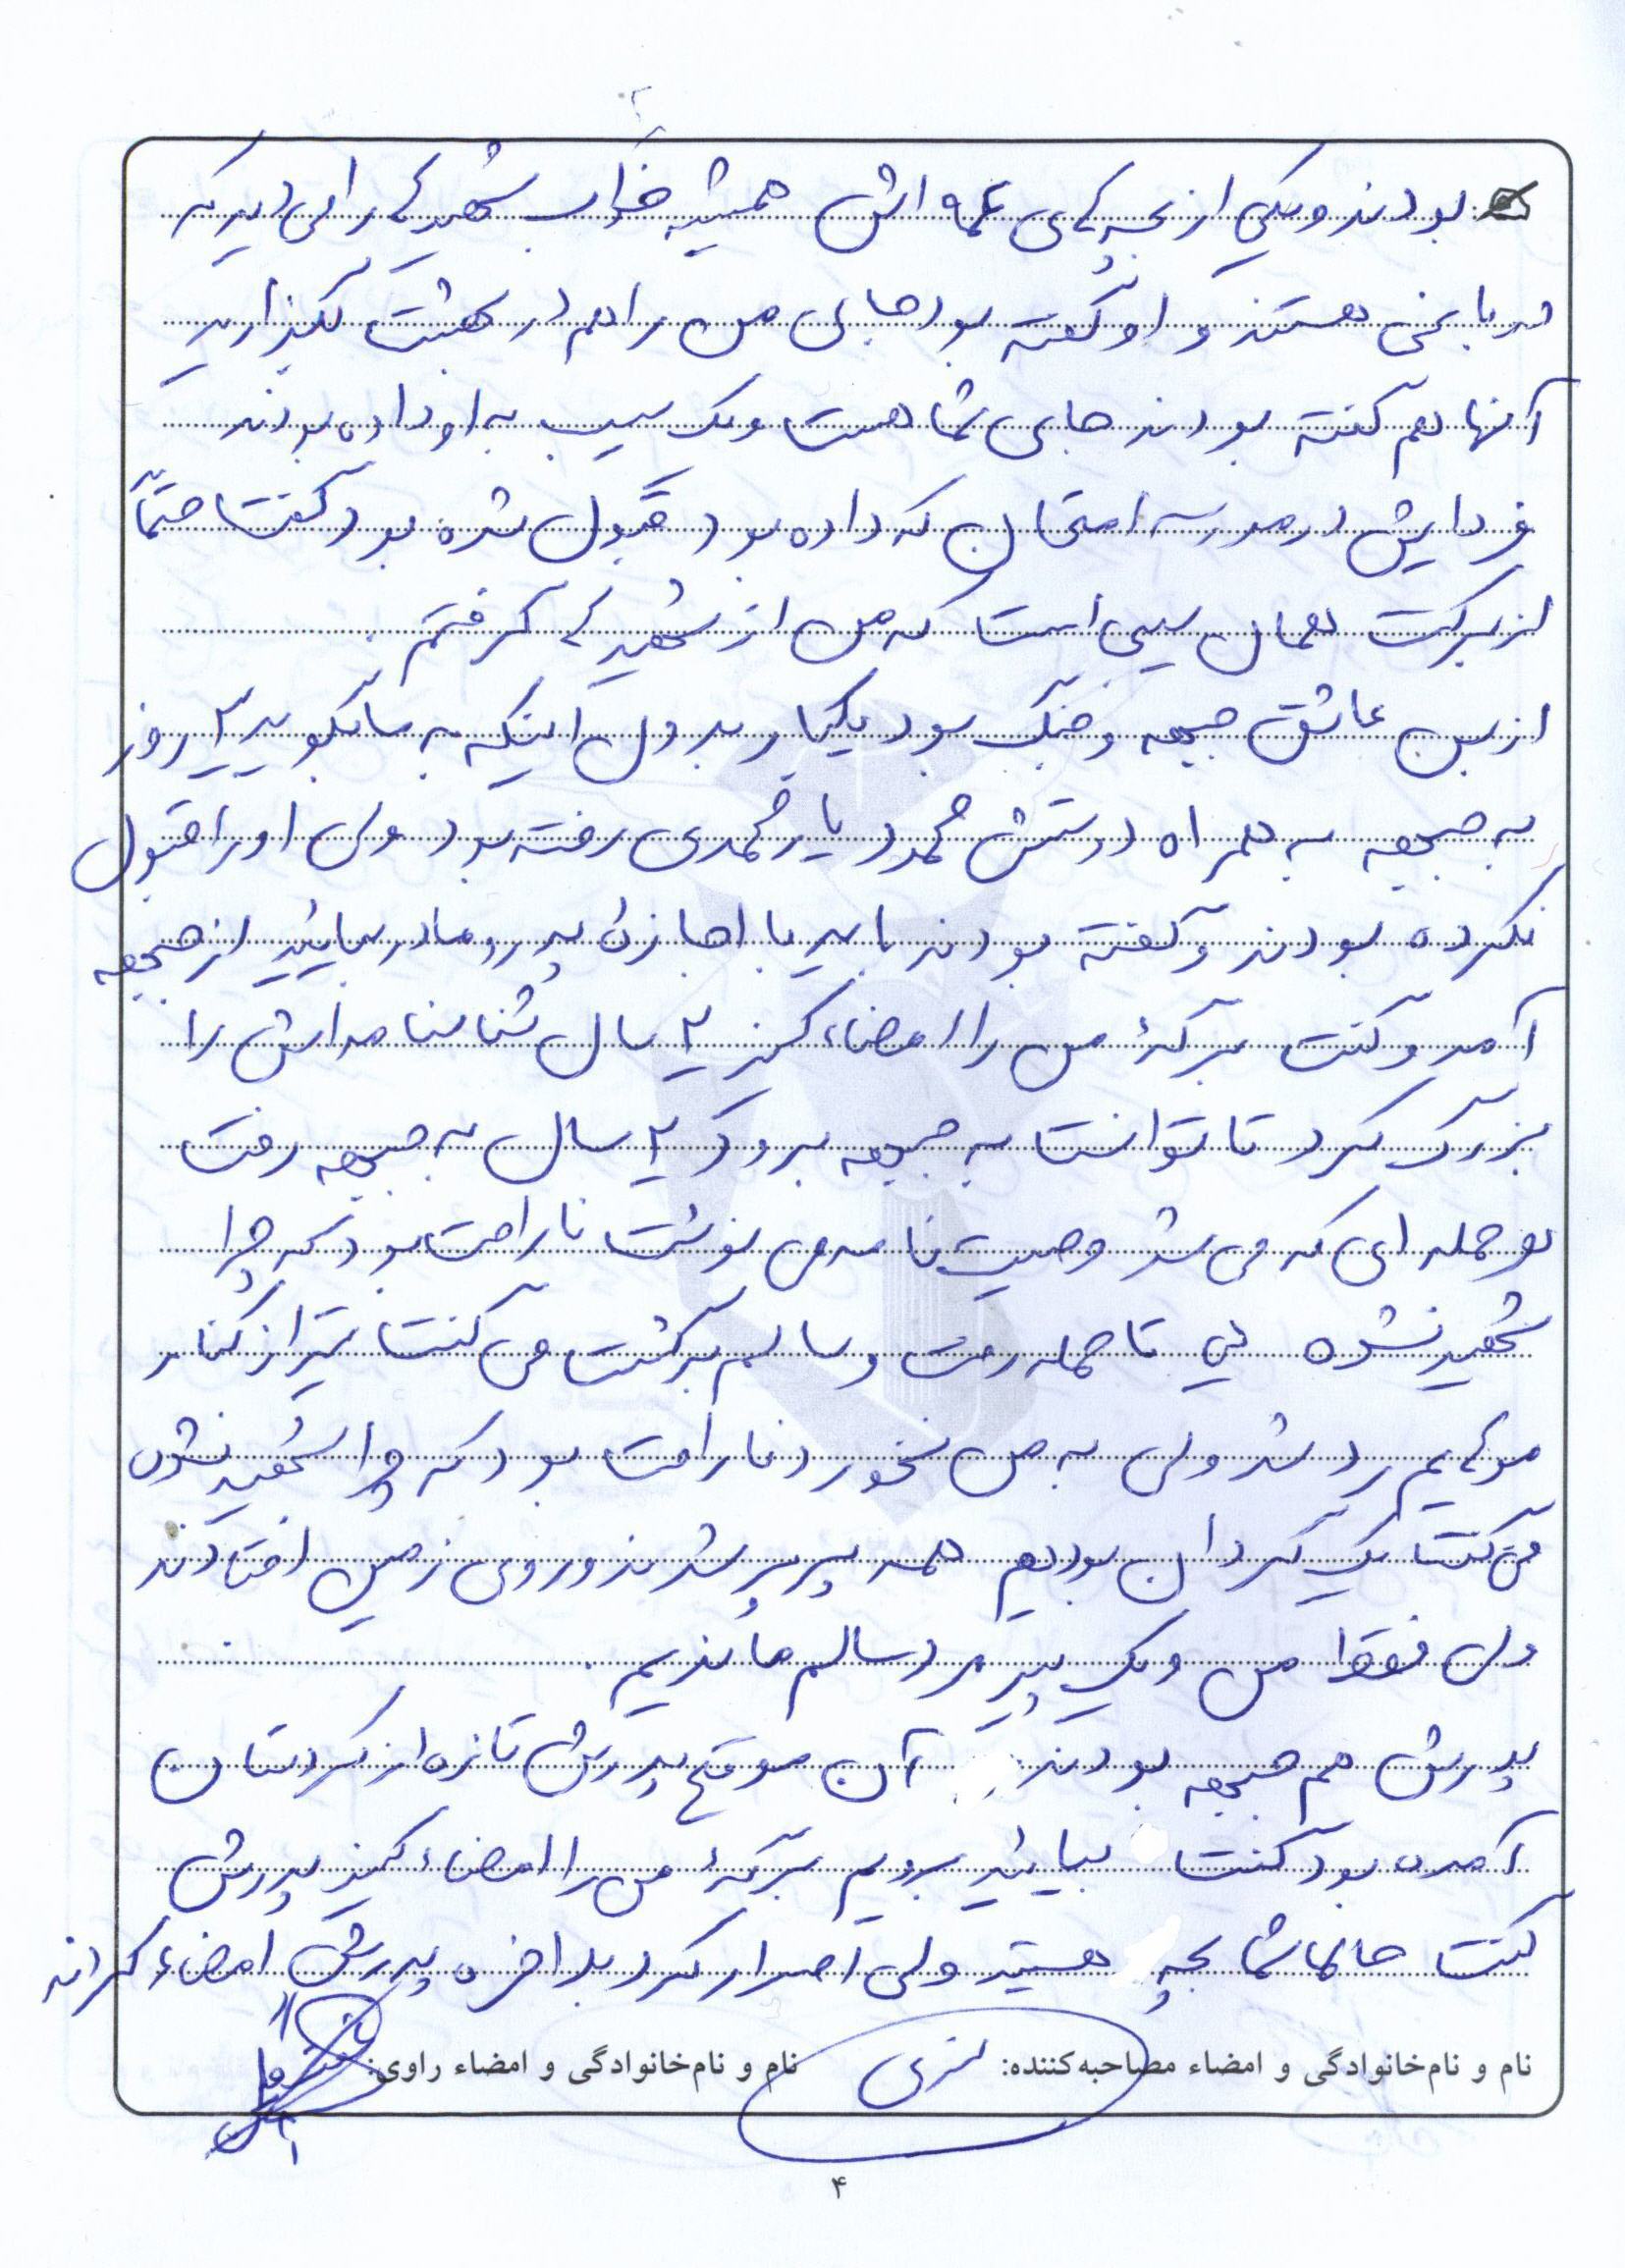 بودند و یکی از بچه‌های عمه اش همیشه خواب شهید را می دید که
در باغی هستند و او گفته بود جای من را هم در بهشت بگذارید
آنها هم گفته بودند جای شما هست و یک سیب به او داده بودند
فردایش در مدرسه امتحان که داده بود قبول شده بود گفت حتماً
از برکت همان سیبی است که من از شهید گرفتم .
از بس عاشق جبهه و جنگ بود یکبار بدون اینکه به ما بگوید ۲ روز
به جبهه به همراه دوستش محمود یارمحمدی رفته بود ولی او را قبول
نکرده بودند و گفته بودند باید با اجازهٔ پدر و مادر بیائید از جبهه
آمد و گفت برگهٔ من را امضاء کنید ۲ سال شناسنامه اش را
بزرگ کرد تا توانست به جبهه برود ۲ سال به جبهه رفت
هر حمله ای که می شد وصیت نامه می نوشت ناراحت بود که چرا
شهید نشده تا حمله رفت و سالم برگشت می گفت تیر از کنار
موهایم رد شد ولی به من نخورد ناراحت بود که چرا شهید نشدن
می گفت یک گردان بودیم همه پرپر شدند و روی زمین افتادند
ولی فقط من و یک پیرمرد سالم ماندیم .
پدرش هم جبهه بودند آن موقع پدرش تازه از کردستان
آمده بود گفت بیائید برویم برگهٔ من را امضاء کنید پدرش
گفت حالا شما بچه هستید ولی اصرار کرد بلاخره پدرش امضاء کرد
نام و نام‌خانوادگی و امضاء مصاحبه‌کننده: نام و نام‌خانوادگی و امضاء راوی:
۴